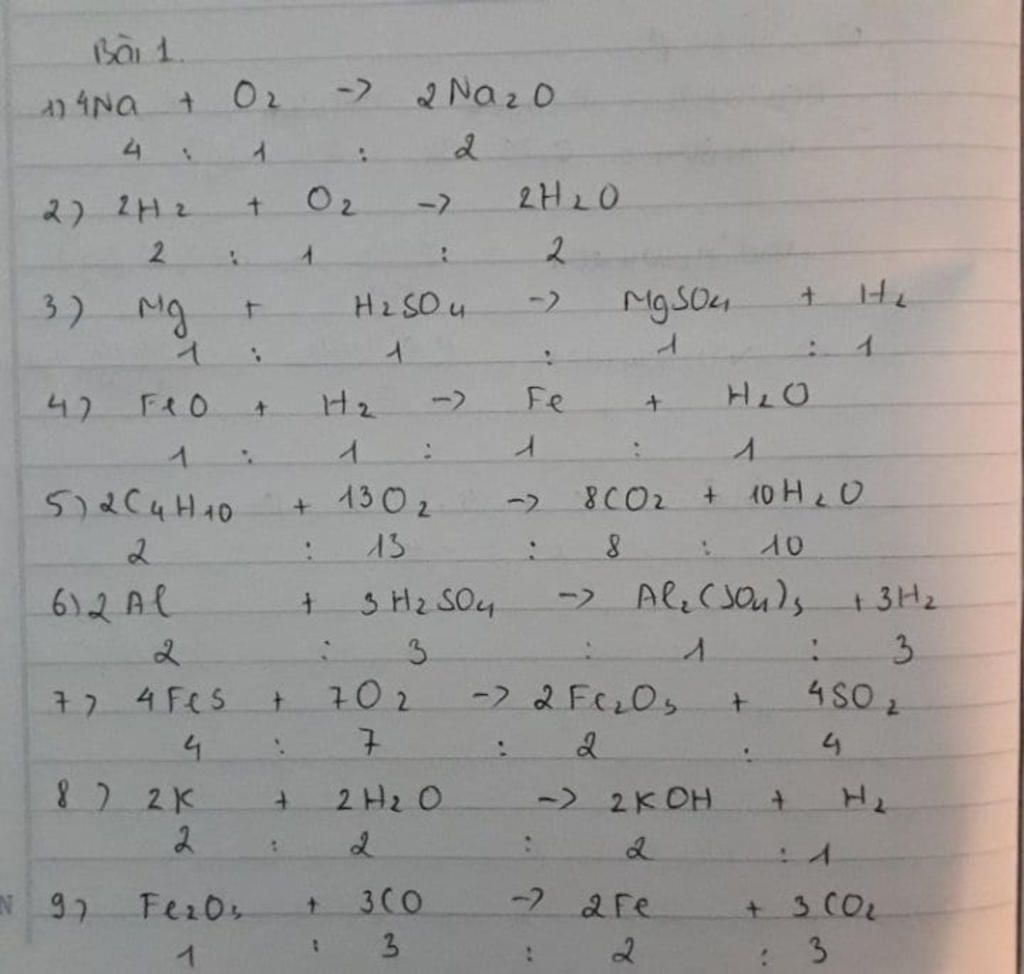 Bài 1.
1) 4Na + O2 -> 2Na2O
4 : 1 : 2
2) 2H2 + O2 -> 2H2O
2 : 1 : 2
3) Mg + H2SO4 -> MgSO4 + H2
1 : 1 : 1 : 1
4) FeO + H2 -> Fe + H2O
1 : 1 : 1 : 1
5) 2C4H10 + 13O2 -> 8CO2 + 10H2O
2 : 13 : 8 : 10
6) 2Al + 3H2SO4 -> Al2(SO4)3 + 3H2
2 : 3 : 1 : 3
7) 4FeS + 7O2 -> 2Fe2O3 + 4SO2
4 : 7 : 2 : 4
8) 2K + 2H2O -> 2KOH + H2
2 : 2 : 2 : 1
N 9) Fe2O3 + 3CO -> 2Fe + 3CO2
1 : 3 : 2 : 3